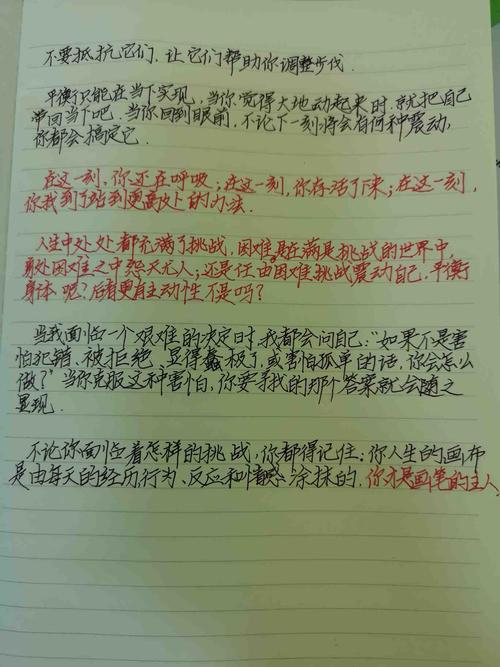 不要抵抗它们，让它们帮助你调整步伐.
平衡只能在当下实现，当你觉得大地动起来时，就把自己
带回当下吧，当你回到眼前，不论下一刻将会有何种震动，
你都会搞定它.
在这一刻，你还在呼吸；在这一刻，你存活了下来；在这一刻，
你找到了站到更高处的办法.
人生中处处都充满了挑战，困难。是在满是挑战的世界中，
身处困难之中怨天尤人；还是任由困难挑战震动自己，平衡
身体呢？后者更自主动性不是吗？
当我面临一个艰难的决定时，我都会问自己："如果不是害
怕犯错、被拒绝、显得蠢极了，或害怕孤单的话，你会怎么
做？"当你克服这种害怕，你要寻找的那个答案就会随之
显现.
不论你面临着怎样的挑战，你都得记住：你人生的画布
是由每天的经历行为、反应和情感涂抹的，你才是画笔的主人.